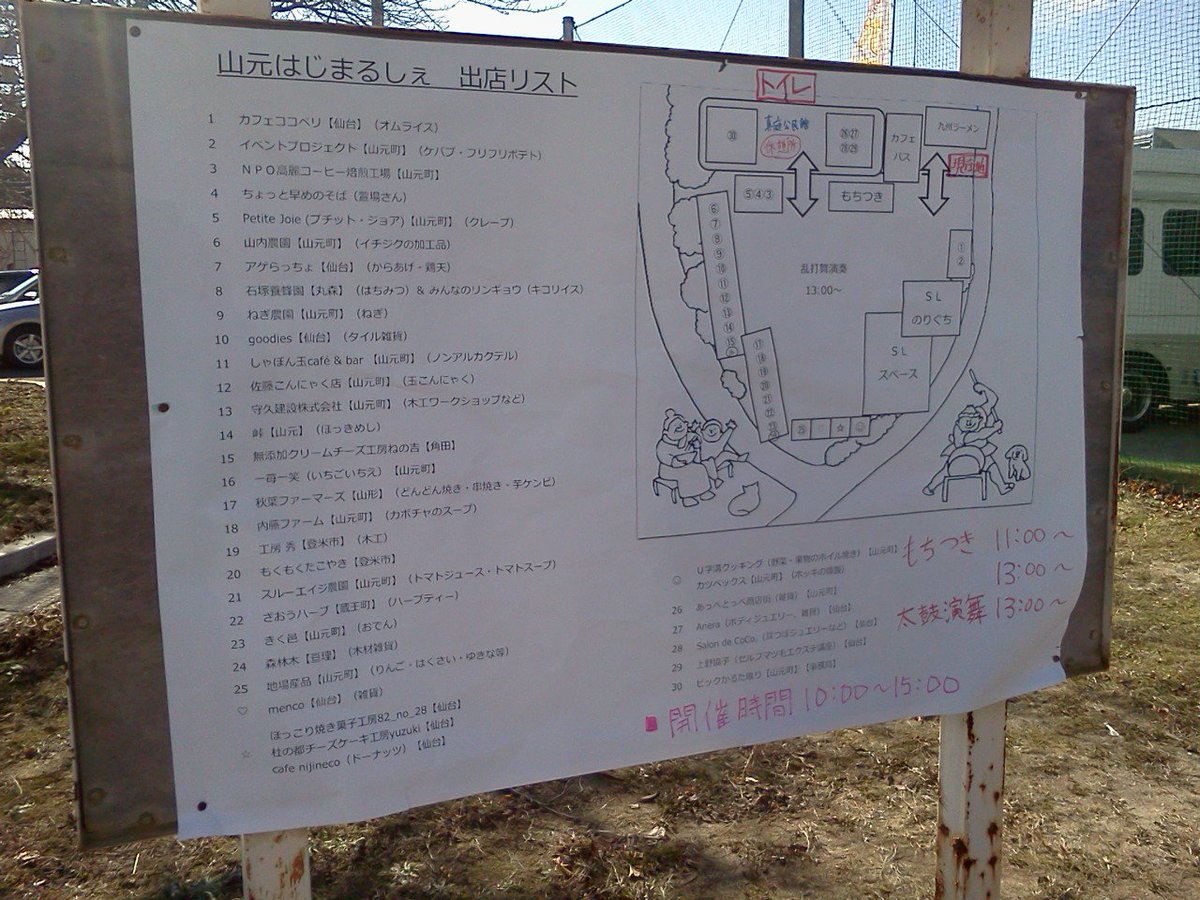 山元はじまるしぇ 出店リスト
1 カフェココペリ【仙台】（オムライス）
2 イベントプロジェクト【山元町】（ケバブ・フリフリポテト）
3 ＮＰＯ高麗コーヒー焙煎工場【山元町】
4 ちょっと早めのそば（萱場さん）
5 Petite Joie (プチット・ジョア)【山元町】（クレープ）
6 山内農園【山元町】（イチジクの加工品）
7 アゲらっちょ【仙台】（からあげ・鶏天）
8 石塚養蜂園【丸森】（はちみつ）& みんなのリンキョウ（キコリイス）
9 ねぎ農園【山元町】（ねぎ）
10 goodies【仙台】（タイル雑貨）
11 しゃぼん玉café & bar 【山元町】（ノンアルカクテル）
12 佐藤こんにゃく店【山元町】（玉こんにゃく）
13 守久建設株式会社【山元町】（木工ワークショップなど）
14 峠【山元】（ほっきめし）
15 無添加クリームチーズ工房ねの吉【角田】
16 一苺一笑（いちごいちえ）【山元町】
17 秋葉ファーマーズ【山形】（どんどん焼き・串焼き・芋ケンピ）
18 内藤ファーム【山元町】（カボチャのスープ）
19 工房 秀【登米市】（木工）
20 もくもくたこやき【登米市】
21 スルーエイジ農園【山元町】（トマトジュース・トマトスープ）
22 ざおうハーブ【蔵王町】（ハーブティー）
23 きく邑【山元町】（おでん）
24 森林木【亘理】（木材雑貨）
25 地場産品【山元町】（りんご・はくさい・ゆきな等）
♡ menco【仙台】（雑貨）
ほっこり焼き菓子工房82_no_28【仙台】
☆ 杜の都チーズケーキ工房yuzuki【仙台】
cafe nijineco（ドーナッツ）【仙台】
トイレ
㉚ 真庭公民館 ㉖㉗
休憩所 ㉘㉙
カフェバス
九州ラーメン
現在地
⑤④③
もちつき
⑥
⑦
⑧
⑨
⑩
⑪
⑫
⑬
⑭
⑮
⑯
①
②
乱打舞演奏
13:00～
ＳＬ
のりぐち
ＳＬ
スペース
⑰
⑱
⑲
⑳
㉑
㉒
㉓
㉕ ♡ ☆ ☺
☺ Ｕ字溝クッキング（野菜・果物のホイル焼き）【山元町】
カツベックス【山元町】（ホッキの燻製）
26 あっへとっぺ商店街（雑貨）【山元町】
27 Anera（ボディジュエリー、雑貨）【仙台】
28 Salon de CoCo。（耳つぼジュエリーなど）【仙台】
29 上野協子（セルフマツ毛エクステ講座）【仙台】
30 ビックかるた取り【山元町】【事務局】
もちつき 11:00～
13:00～
太鼓演舞 13:00～
開催時間 10:00～15:00